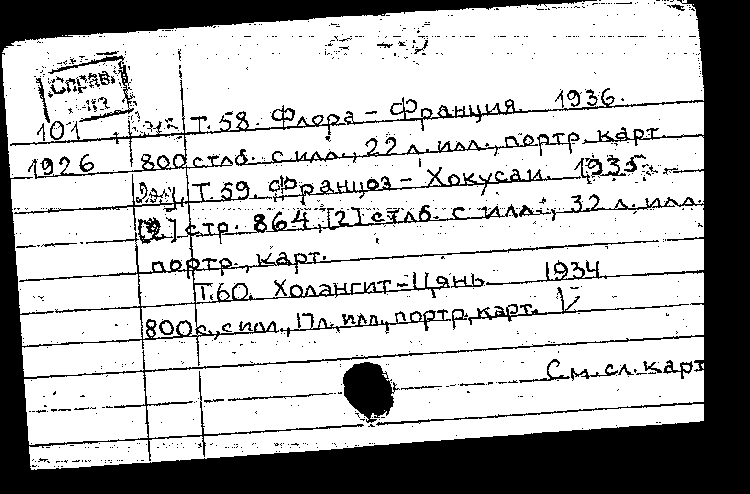 Справ.
101 Т. 58. Флора - Франция. 1936.
1926 800 стлб. с илл., 22 л. илл., портр. карт.
Т. 59. Француз - Хокусаи. 1935
[2] стр. 864, [2] стлб. с илл., 32 л. илл.
портр., карт.
Т. 60. Холангит - Цянь. 1934.
800 с., с илл., 17 л. илл., портр., карт. V
См. сл. карт